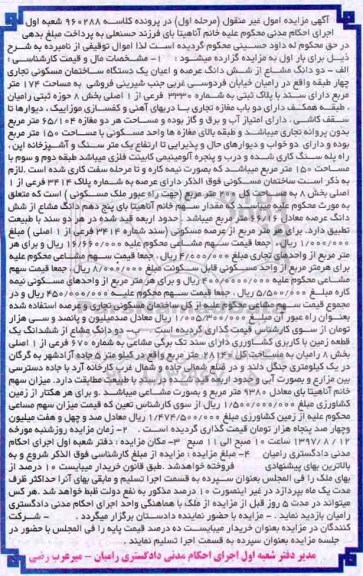 آگهی مزایده اموال غیر منقول (مرحله اول) در پرونده کلاسه ۹۶۰۲۸۸ شعبه اول
اجرای احکام مدنی محکوم علیه خانم آناهیتا بای فرزند حسنعلی به پرداخت مبلغ بدهی
در حق محکوم له داود حسینی محکوم گردیده است لذا اموال توقیفی از نامبرده به شرح
ذیل برای بار اول به مزایده گزارده میشود : ۱- مشخصات مال و قیمت کارشناسی :
الف - دو دانگ مشاع از شش دانگ عرصه و اعیان یک دستگاه ساختمان مسکونی تجاری
چهار طبقه واقع در رامیان خیابان فردوسی غربی جنب شیرینی فروشی به مساحت ۱۷۴ متر
مربع دارای سند با پلاک ثبتی به شماره ۳۳۳۰ فرعی از ۱ اصلی بخش ۸ حوزه ثبتی رامیان
، طبقه همکف دارای دو باب مغازه تجاری با دربهای آهنی و کفسازی موزاییک ، دیوارها تا
سقف کاشی ، دارای امتیاز آب و برق و گاز بوده و مساحت هر دو مغازه ۶۵/۱۰۴ متر مربع
بدون پروانه تجاری میباشد و طبقه بالای مغازه ها واحد مسکونی با مساحت ۱۵۰ متر مربع
بوده و دارای دو خواب و دیوارهای حال و پذیرایی تا ارتفاع یک متر سنگ و آشپزخانه اپن ،
راه پله سنگ کاری شده و درب و پنجره آلومینیمی کابینت فلزی میباشد طبقه دوم و سوم با
مساحت ۱۵۰ متر مربع میباشد که بصورت نیمه کاره و تا مرحله سفت کاری شده است. لازم
به ذکر است ساختمان مسکونی فوق الذکر دارای عرصه به شماره پلاک ۳۴۱۴ فرعی از ۱
اصلی بخش ۸ به مساحت کل ۲۰۰ متر مربع (جهت راه عبور ملک مسکونی ) است که متعلق
به مورث محکوم علیه میباشد که مقدار سهم خانم آناهیتا بای پنج دهم دانگ مشاع از شش
دانگ عرصه معادل ۶۶/۱۶ متر مربع میباشد . حدود اربعه قید شده در هر دو سند با طبیعت
تطبیق دارد. برای هر متر مربع از عرصه مسکونی (سند شماره ۳۴۱۴ فرعی از ۱ اصلی ) مبلغ
۱/۰۰۰/۰۰۰ ریال ، جمعا قیمت سهم مشاعی محکوم علیه ۱۶/۶۶۰/۰۰۰ ریال و برای هر
متر مربع از واحدهای تجاری مبلغ ۴/۰۰۰/۰۰۰ ریال ، جمعا قیمت سهم مشاعی محکوم علیه
برای هرمتر مربع از واحد مسکونی قابل سکونت مبلغ ۸/۰۰۰/۰۰۰ ریال ، جمعا قیمت سهم
مشاعی محکوم علیه ۴۰۰/۰۰۰/۰۰۰ ریال و برای هرمتر مربع از واحدهای مسکونی نیمه
کاره مبلغ ۵/۵۰۰/۰۰۰ ریال ، جمعا قیمت سهم محکوم علیه ۴۵۰/۰۰۰/۰۰۰ ریال و در
مجموع قیمت سهم مشاعی محکوم علیه از کل ساختمان مسکونی تجاری و عرصه استفاده شده
بعنوان راه عبور آن مبلغ ۱/۰۰۵/۳۰۰/۰۰۰ ریال معادل صدمیلیون و پانصد و سی هزار
تومان از سوی کارشناس قیمت گذاری گردیده است. ب- دو دانگ مشاع از ششدانگ یک
قطعه زمین با کاربری کشاورزی دارای سند تک برگی مشاعی به شماره ۶۷۰ فرعی از ۱ اصلی
بخش ۸ رامیان به مساحت کل ۲۸۱۴۰ متر مربع واقع در کیلو متر ۵ جاده آزادشهر به گرگان
در یک کیلومتری جنگل دلند و در ضلع شمالی جاده و شمال غرب کارخانه آرد با جاده دسترسی
بین مزارع و بصورت آبی و حدود اربعه قیدشده در سند با طبیعت مطابقت دارد. میزان سهم
خانم آناهیتا بای معادل ۹۳۸۰ متر مربع و بصورت مشاعی میباشد و برای هر هکتار از زمین
کشاورزی مبلغ ۱/۵۰۰/۰۰۰/۰۰۰ ریال از سوی کارشناس تعیین و قیمت میزان سهم مساعی
محکوم علیه از زمین کشاورزی مبلغ ۱/۴۷۴/۵۰۰/۰۰۰ ریال معادل صد و چهل و هفت میلیون
وچهار صد پنجاه هزار تومان قیمت گذاری گردیده است. ۲- زمان مزایده روزشنبه مورخه
۱۳۹۷/۸/۱۲ ساعت ۱۰ صبح الی ۱۱ صبح ۳- مکان مزایده : دفتر شعبه اول اجرای احکام
مدنی دادگستری رامیان ۴- مبلغ مزایده : مزایده از مبلغ کارشناسی فوق الذکر شروع و به
بالاترین بهای پیشنهادی فروخته خواهدشد .طبق قانون خریدار میبایست ۱۰ درصد از
بهای ملک را فی المجلس بعنوان سپرده به قسمت اجرا تسلیم و مابقی بهای آنرا حداکثر ظرف
مدت یک ماه بپردازد در غیر اینصورت ۱۰ درصد مذکور به نفع دولت ظبط خواهد شد .هر کس
میتواند در مدت ۵ روز قبل از مزایده از ملک با هماهنگی واحد اجرای احکام مدنی دادگستری
رامیان بازدید نماید . – مزایده با حضور نماینده دادستان برگزار میگردد . - شرکت
کنندگان در مزایده بعنوان خریدار میبایست ده درصد قیمت پایه را فی المجلس با حضور در
جلسه مزایده بعنوان سپرده به قسمت اجرا تسلیم نمایند .
مدیر دفتر شعبه اول اجرای احکام مدنی دادگستری رامیان - میرعرب رضی